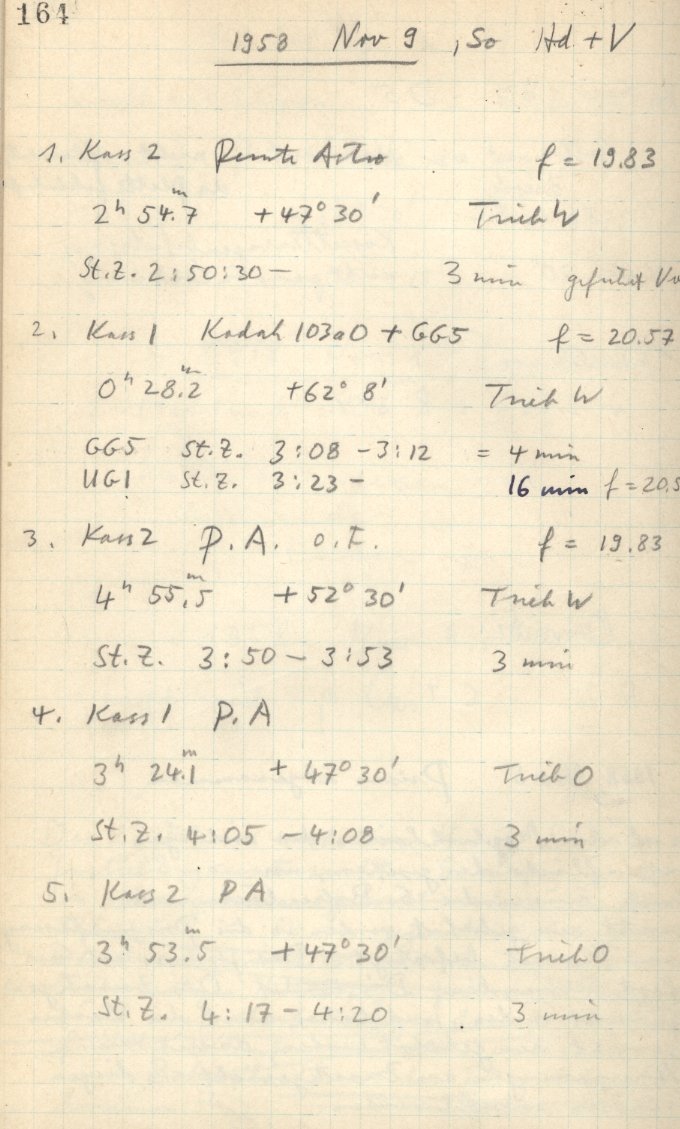 164
1958 Nov 9, So Hd + V
1. Kass 2 Perutz Astro f = 19.83
2ʰ 54.ᵐ7 +47° 30' Trieb W
St.Z. 2:50:30 — 3 min geführt
2. Kass 1 Kodak 103aO + GG5 f = 20.57
0ʰ 28.ᵐ2 +62° 8' Trieb W
GG5 St.Z. 3:08 - 3:12 = 4 min
UG1 St.Z. 3:23 - 16 min f = 20.5
3. Kass 2 P.A. o.F. f = 19.83
4ʰ 55.ᵐ5 +52° 30' Trieb W
St.Z. 3:50 - 3:53 3 min
4. Kass 1 P.A
3ʰ 24.ᵐ1 +47° 30' Trieb O
St.Z. 4:05 - 4:08 3 min
5. Kass 2 PA
3ʰ 53.ᵐ5 +47° 30' Trieb O
St.Z. 4:17 - 4:20 3 min